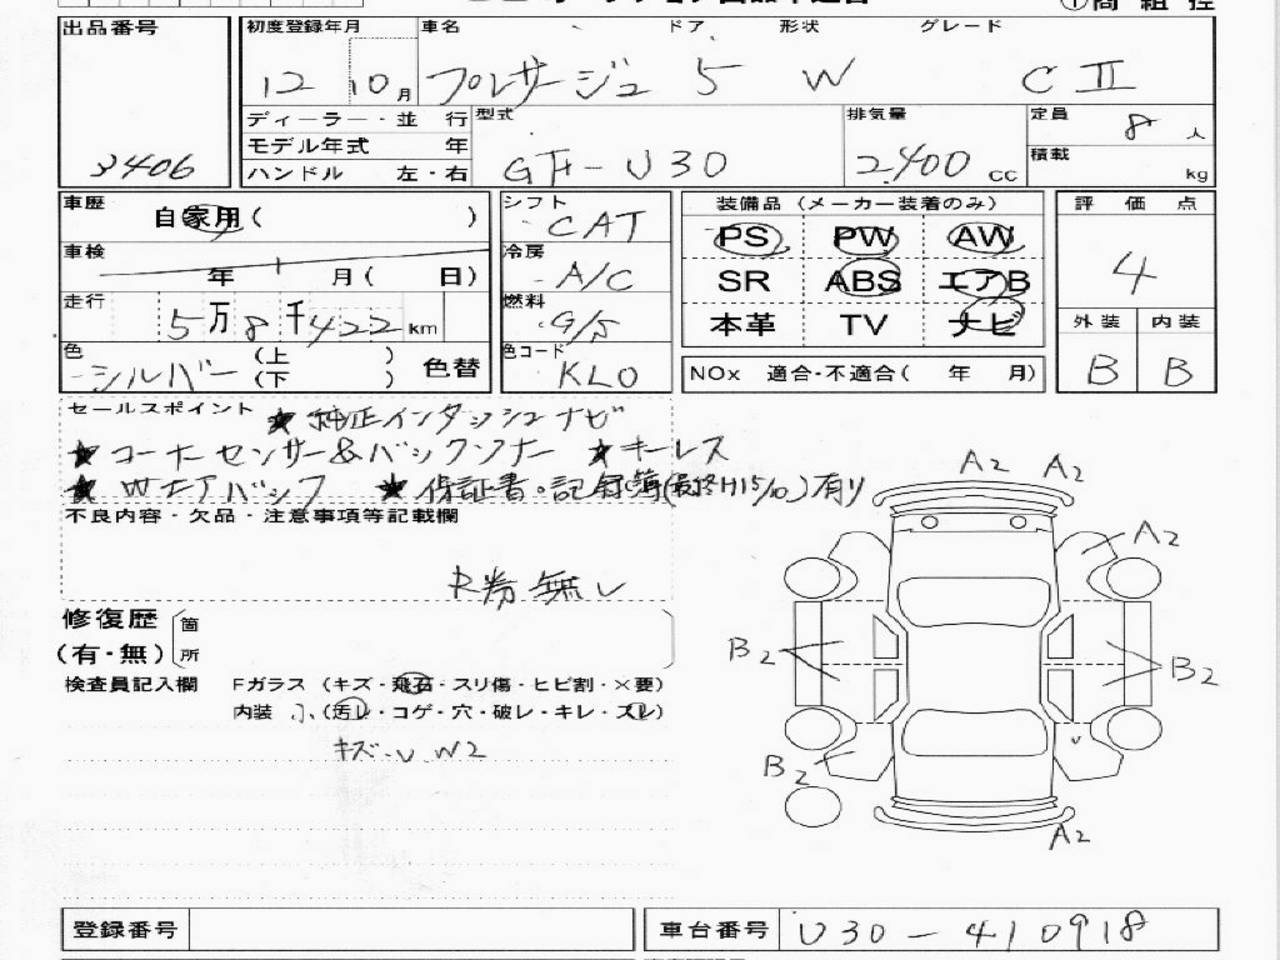 出品番号 初度登録年月 車名 ドア 形状 グレード
12 10月 プレサージュ 5 W CⅡ
ディーラー・並 行 型式 排気量 定員 8人
モデル年式 年
3406 ハンドル 左・右 GF-U30 2,400cc 積載 kg
車歴 自家用( ) シフト CAT 装備品(メーカー装着のみ) 評 価 点
PS PW AW
車検 年 月( 日) 冷房 A/C SR ABS エアB 4
走行 5万8千422km 燃料 G/S 本革 TV ナビ 外装 内装
色 シルバー (上 ) (下 ) 色替 色コード KLO NOx 適合・不適合( 年 月) B B
セールスポイント ★純正インダッシュナビ
★コーナーセンサー&バックソナー ★キーレス
★Wエアバッグ ★保証書・記録簿(最終H15/10)有り
不良内容・欠品・注意事項等記載欄
R券無し
修復歴 箇
(有・無) 所
検査員記入欄 Fガラス(キズ・飛石・スリ傷・ヒビ割・×要)
内装 小(汚レ・コゲ・穴・破レ・キレ・スレ)
キズ・U W2
A2 A2
A2
B2 B2
B2
A2
登録番号 車台番号 U30-410918